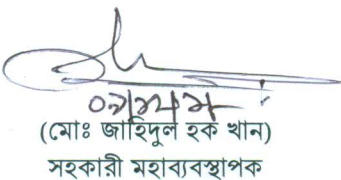 (মোঃ জাহিদুল হক খান)
সহকারী মহাব্যবস্থাপক